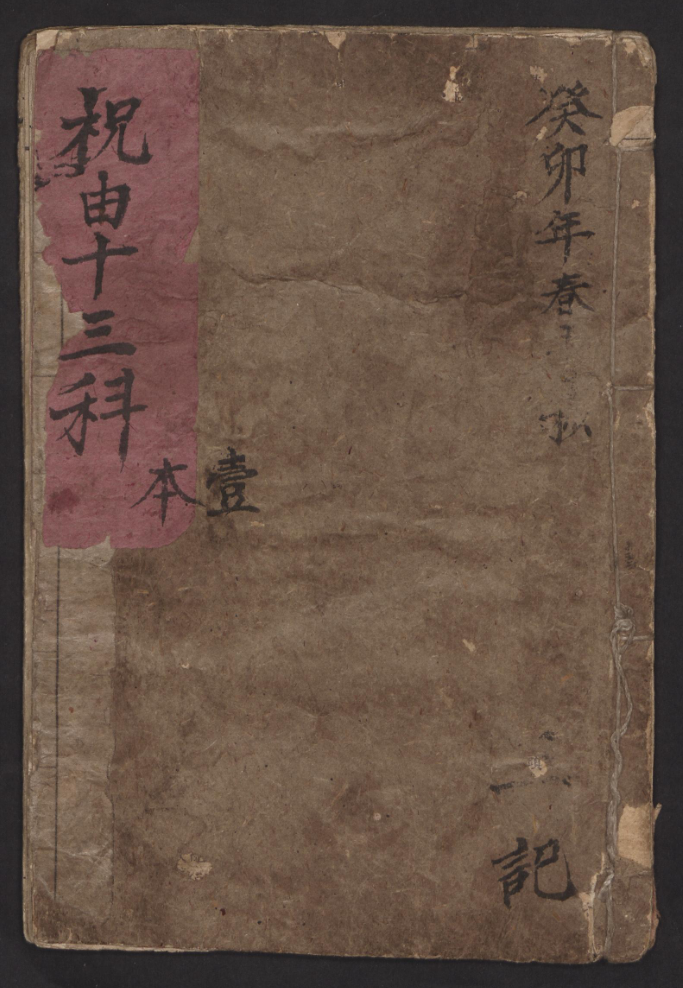 癸卯年春
記
祝由十三科
壹本